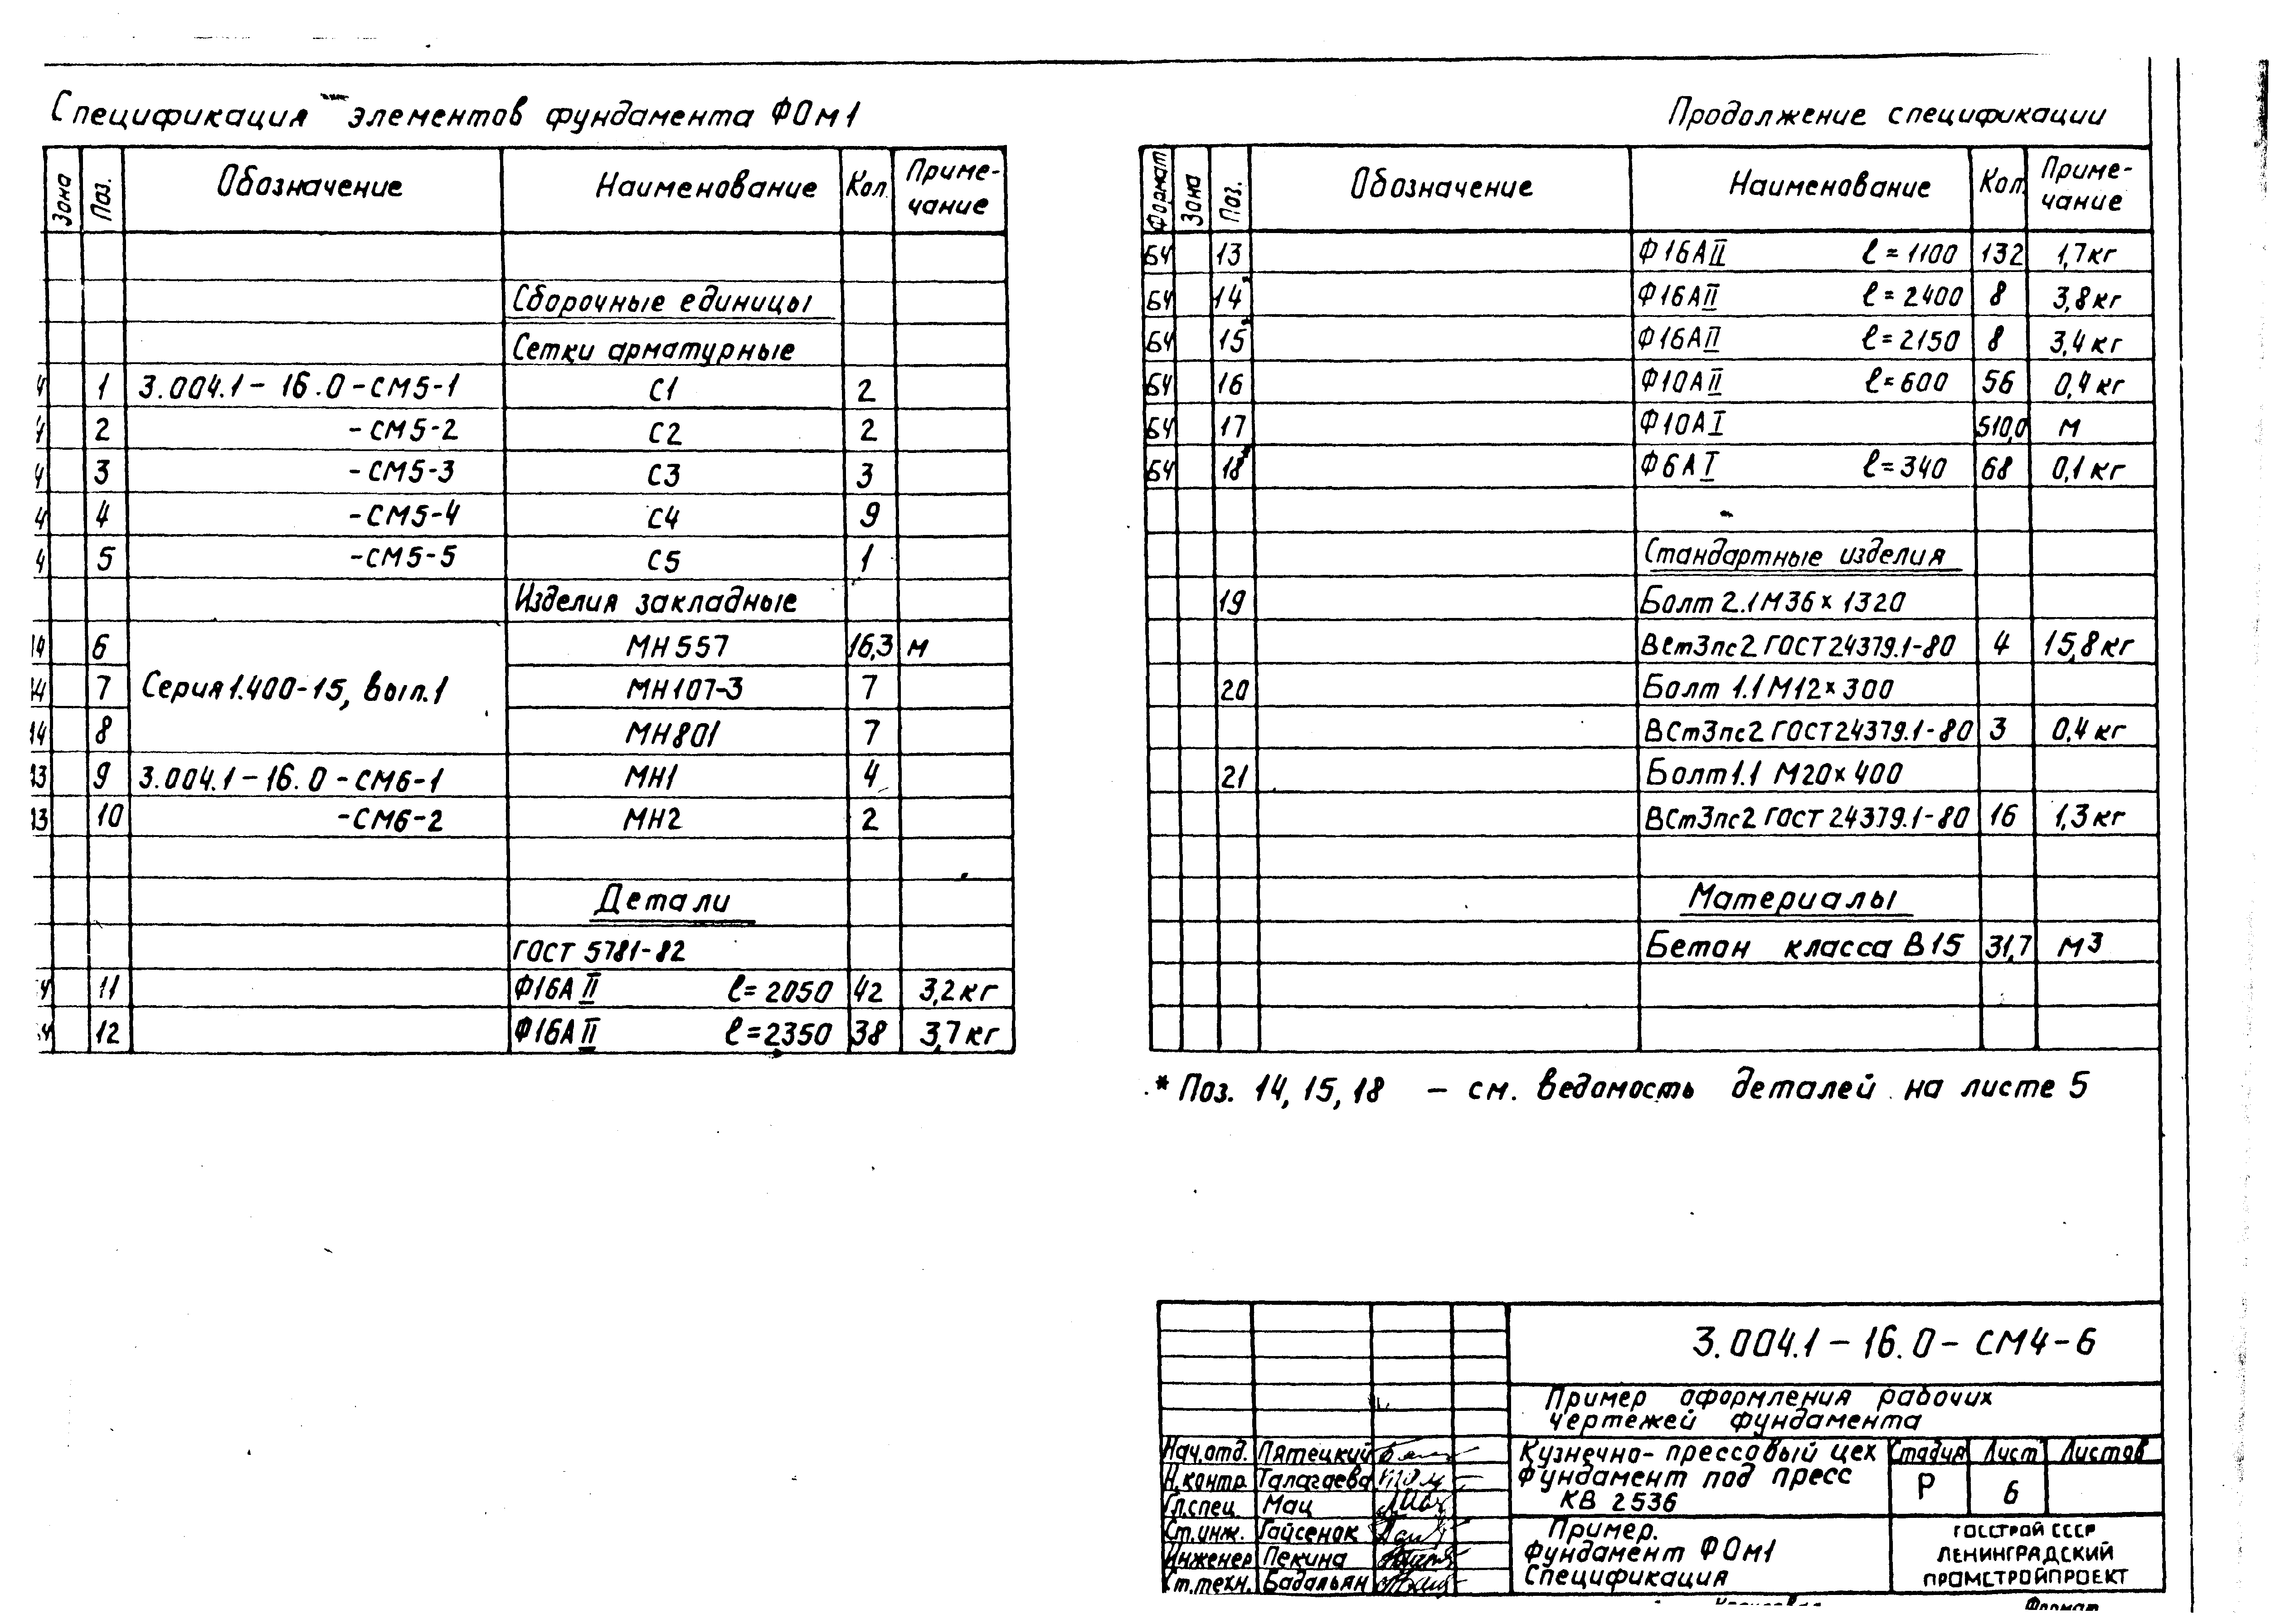 Спецификация элементов фундамента ФОм1
Зона Поз. Обозначение Наименование Кол. Приме-
чание
Сборочные единицы
Сетки арматурные
4 1 3.004.1-16.0-СМ5-1 С1 2
4 2 -СМ5-2 С2 2
4 3 -СМ5-3 С3 3
4 4 -СМ5-4 С4 9
4 5 -СМ5-5 С5 1
Изделия закладные
6 МН557 16,3 м
7 Серия 1.400-15, вып.1 МН107-3 7
8 МН801 7
9 3.004.1-16.0-СМ6-1 МН1 4
10 -СМ6-2 МН2 2
Детали
ГОСТ 5781-82
11 Ф16АII ℓ=2050 42 3,2кг
12 Ф16АII ℓ=2350 38 3,7кг
Продолжение спецификации
Формат Зона Поз. Обозначение Наименование Кол. Приме-
чание
БЧ 13 Ф16АII ℓ=1100 132 1,7кг
БЧ 14* Ф16АII ℓ=2400 8 3,8кг
БЧ 15* Ф16АII ℓ=2150 8 3,4кг
БЧ 16 Ф10АII ℓ=600 56 0,4кг
БЧ 17 Ф10АI 510,0 м
БЧ 18* Ф6АI ℓ=340 68 0,1кг
Стандартные изделия
19 Болт 2.1М36×1320
ВСт3пс2 ГОСТ24379.1-80 4 15,8кг
20 Болт 1.1М12×300
ВСт3пс2 ГОСТ24379.1-80 3 0,4кг
21 Болт 1.1 М20×400
ВСт3пс2 ГОСТ24379.1-80 16 1,3кг
Материалы
Бетон класса В15 31,7 м3
* Поз. 14, 15, 18 - см. ведомость деталей на листе 5
3.004.1-16.0-СМ4-6
Пример оформления рабочих
чертежей фундамента
Нач.отд. Пятецкий
Н.контр. Талагаева
Гл.спец. Мац
Ст.инж. Гайсенок
Инженер Пекина
Ст.техн. Бадальян
Кузнечно-прессовый цех
Фундамент под пресс
КВ 2536
Стадия Лист Листов
Р 6
Пример.
Фундамент ФОм1
Спецификация
ГОССТРОЙ СССР
ЛЕНИНГРАДСКИЙ
ПРОМСТРОЙПРОЕКТ
Формат